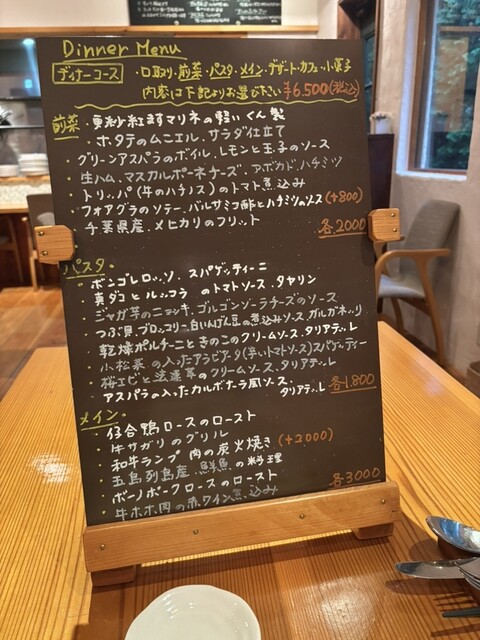 Dinner Menu
ディナーコース
・口取り・前菜・パスタ・メイン・デザート・カフェ・小菓子
内容は下記よりお選び下さい ¥6,500(税込)
前菜・更紗紅鱒マリネの軽いくん製
・ホタテのムニエル、サラダ仕立て
・グリーンアスパラのボイル、レモンと玉子のソース
・生ハム、マスカルポーネチーズ、アボカド、ハチミツ
・トリッパ(牛のハチノス)のトマト煮込み
・フォアグラのソテー、バルサミコ酢とハチミツのソース(+800)
・千葉県産、メヒカリのフリット
各2000
パスタ・
・ボンゴレロッソ、スパゲッティーニ
・真ダコとルッコラのトマトソース、タヤリン
・ジャガ芋のニョッキ、ゴルゴンゾーラチーズのソース
・つぶ貝、ブロッコリー、白いんげん豆の煮込みソース、ガルガネッリ
・乾燥ポルチーニときのこのクリームソース、タリアテッレ
・小松菜の入ったアラビアータ(辛いトマトソース)スパゲッティー
・桜エビと法蓮草のクリームソース、タリアテッレ
・アスパラの入ったカルボナーラ風ソース、
タリアテッレ 各1,800
メイン・
・仔合鴨ロースのロースト
・牛サガリのグリル
・和牛ランプ肉の炭火焼き(+2000)
・五島列島産、鮮魚の料理
・ボーノポークロースのロースト
・牛ホホ肉の赤ワイン煮込み
各3000